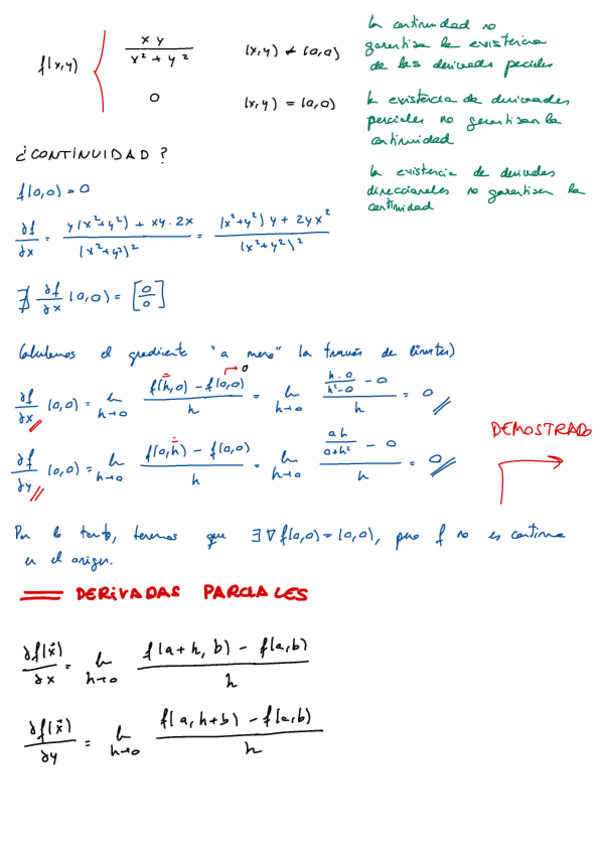 f(x,y) { xy / (x² + y²)   (x,y) ≠ (0,0)
0   (x,y) = (0,0)
La continuidad no
garantiza la existencia
de las derivadas parciales
la existencia de derivadas
parciales no garantizan la
continuidad
la existencia de derivadas
direccionales no garantizan la
continuidad
¿CONTINUIDAD?
f(0,0) = 0
∂f/∂x = (y(x²+y²) + xy·2x) / (x²+y²)² = ((x²+y²)y + 2yx²) / (x²+y²)²
∄ ∂f/∂x (0,0) = [0/0]
Calculemos el gradiente "a mano" (a través de límites)
∂f/∂x (0,0) = lim h→0 (f(h,0) − f(0,0)) / h = lim h→0 (h·0/(h²−0) − 0) / h = 0
0
∂f/∂y (0,0) = lim h→0 (f(0,h) − f(0,0)) / h = lim h→0 (0h/(0+h²) − 0) / h = 0
DEMOSTRADO
Por lo tanto, tenemos que ∃ ∇f(0,0) = (0,0), pero f no es continua
en el origen.
DERIVADAS PARCIALES
∂f(x⃗)/∂x = lim h→0 (f(a+h, b) − f(a,b)) / h
∂f(x⃗)/∂y = lim h→0 (f(a, h+b) − f(a,b)) / h